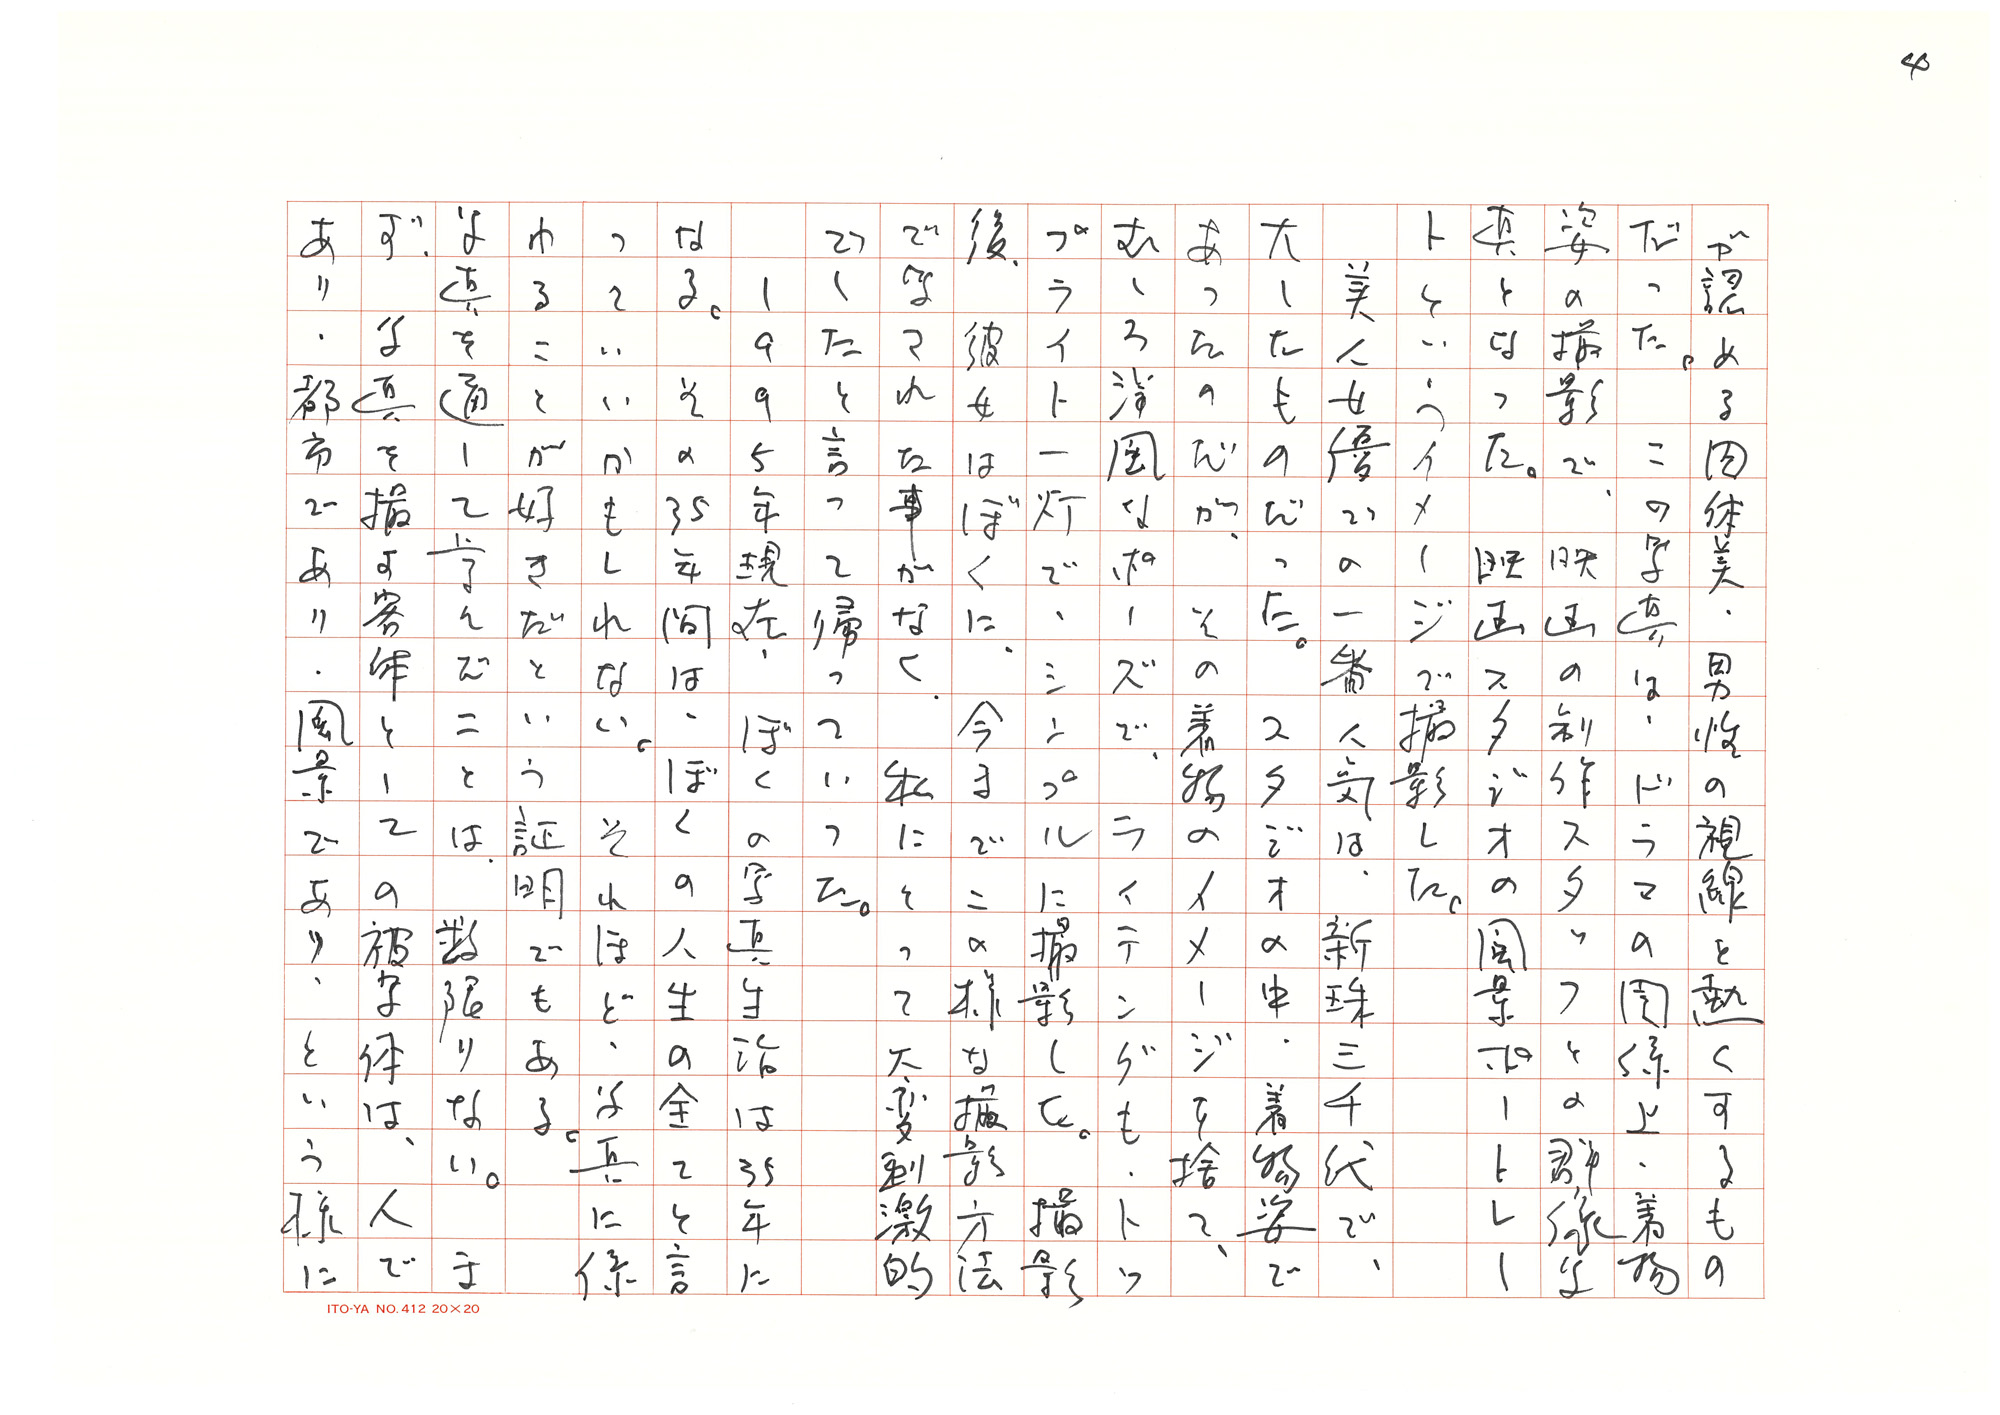 40
が認める肉体美・男性の視線を熱くするもの
だった。この写真は、ドラマの関係上・着物
姿の撮影で、映画の制作スタッフとの群像写
真となった。映画スタジオの風景ポートレー
トというイメージで撮影した。
美人女優での一番人気は、新珠三千代で、
大したものだった。スタジオの中・着物姿で
あったのだが、その着物のイメージを捨て、
むしろ洋風なポーズで、ライティングも・トッ
プライト一灯で、シンプルに撮影した。撮影
後、彼女はぼくに、今までこの様な撮影方法
で写された事がなく、私にとって大変刺激的
でしたと言って帰っていった。
1995年現在、ぼくの写真生活は35年に
なる。その35年間は、ぼくの人生の全てと言
っていいかもしれない。それほど、写真に係
わることが好きだという証明でもある。
写真を通して学んだことは、数限りない。ま
ず、写真を撮す客体としての被写体は、人で
あり・都市であり・風景であり、という様に
ITO-YA NO.412 20×20